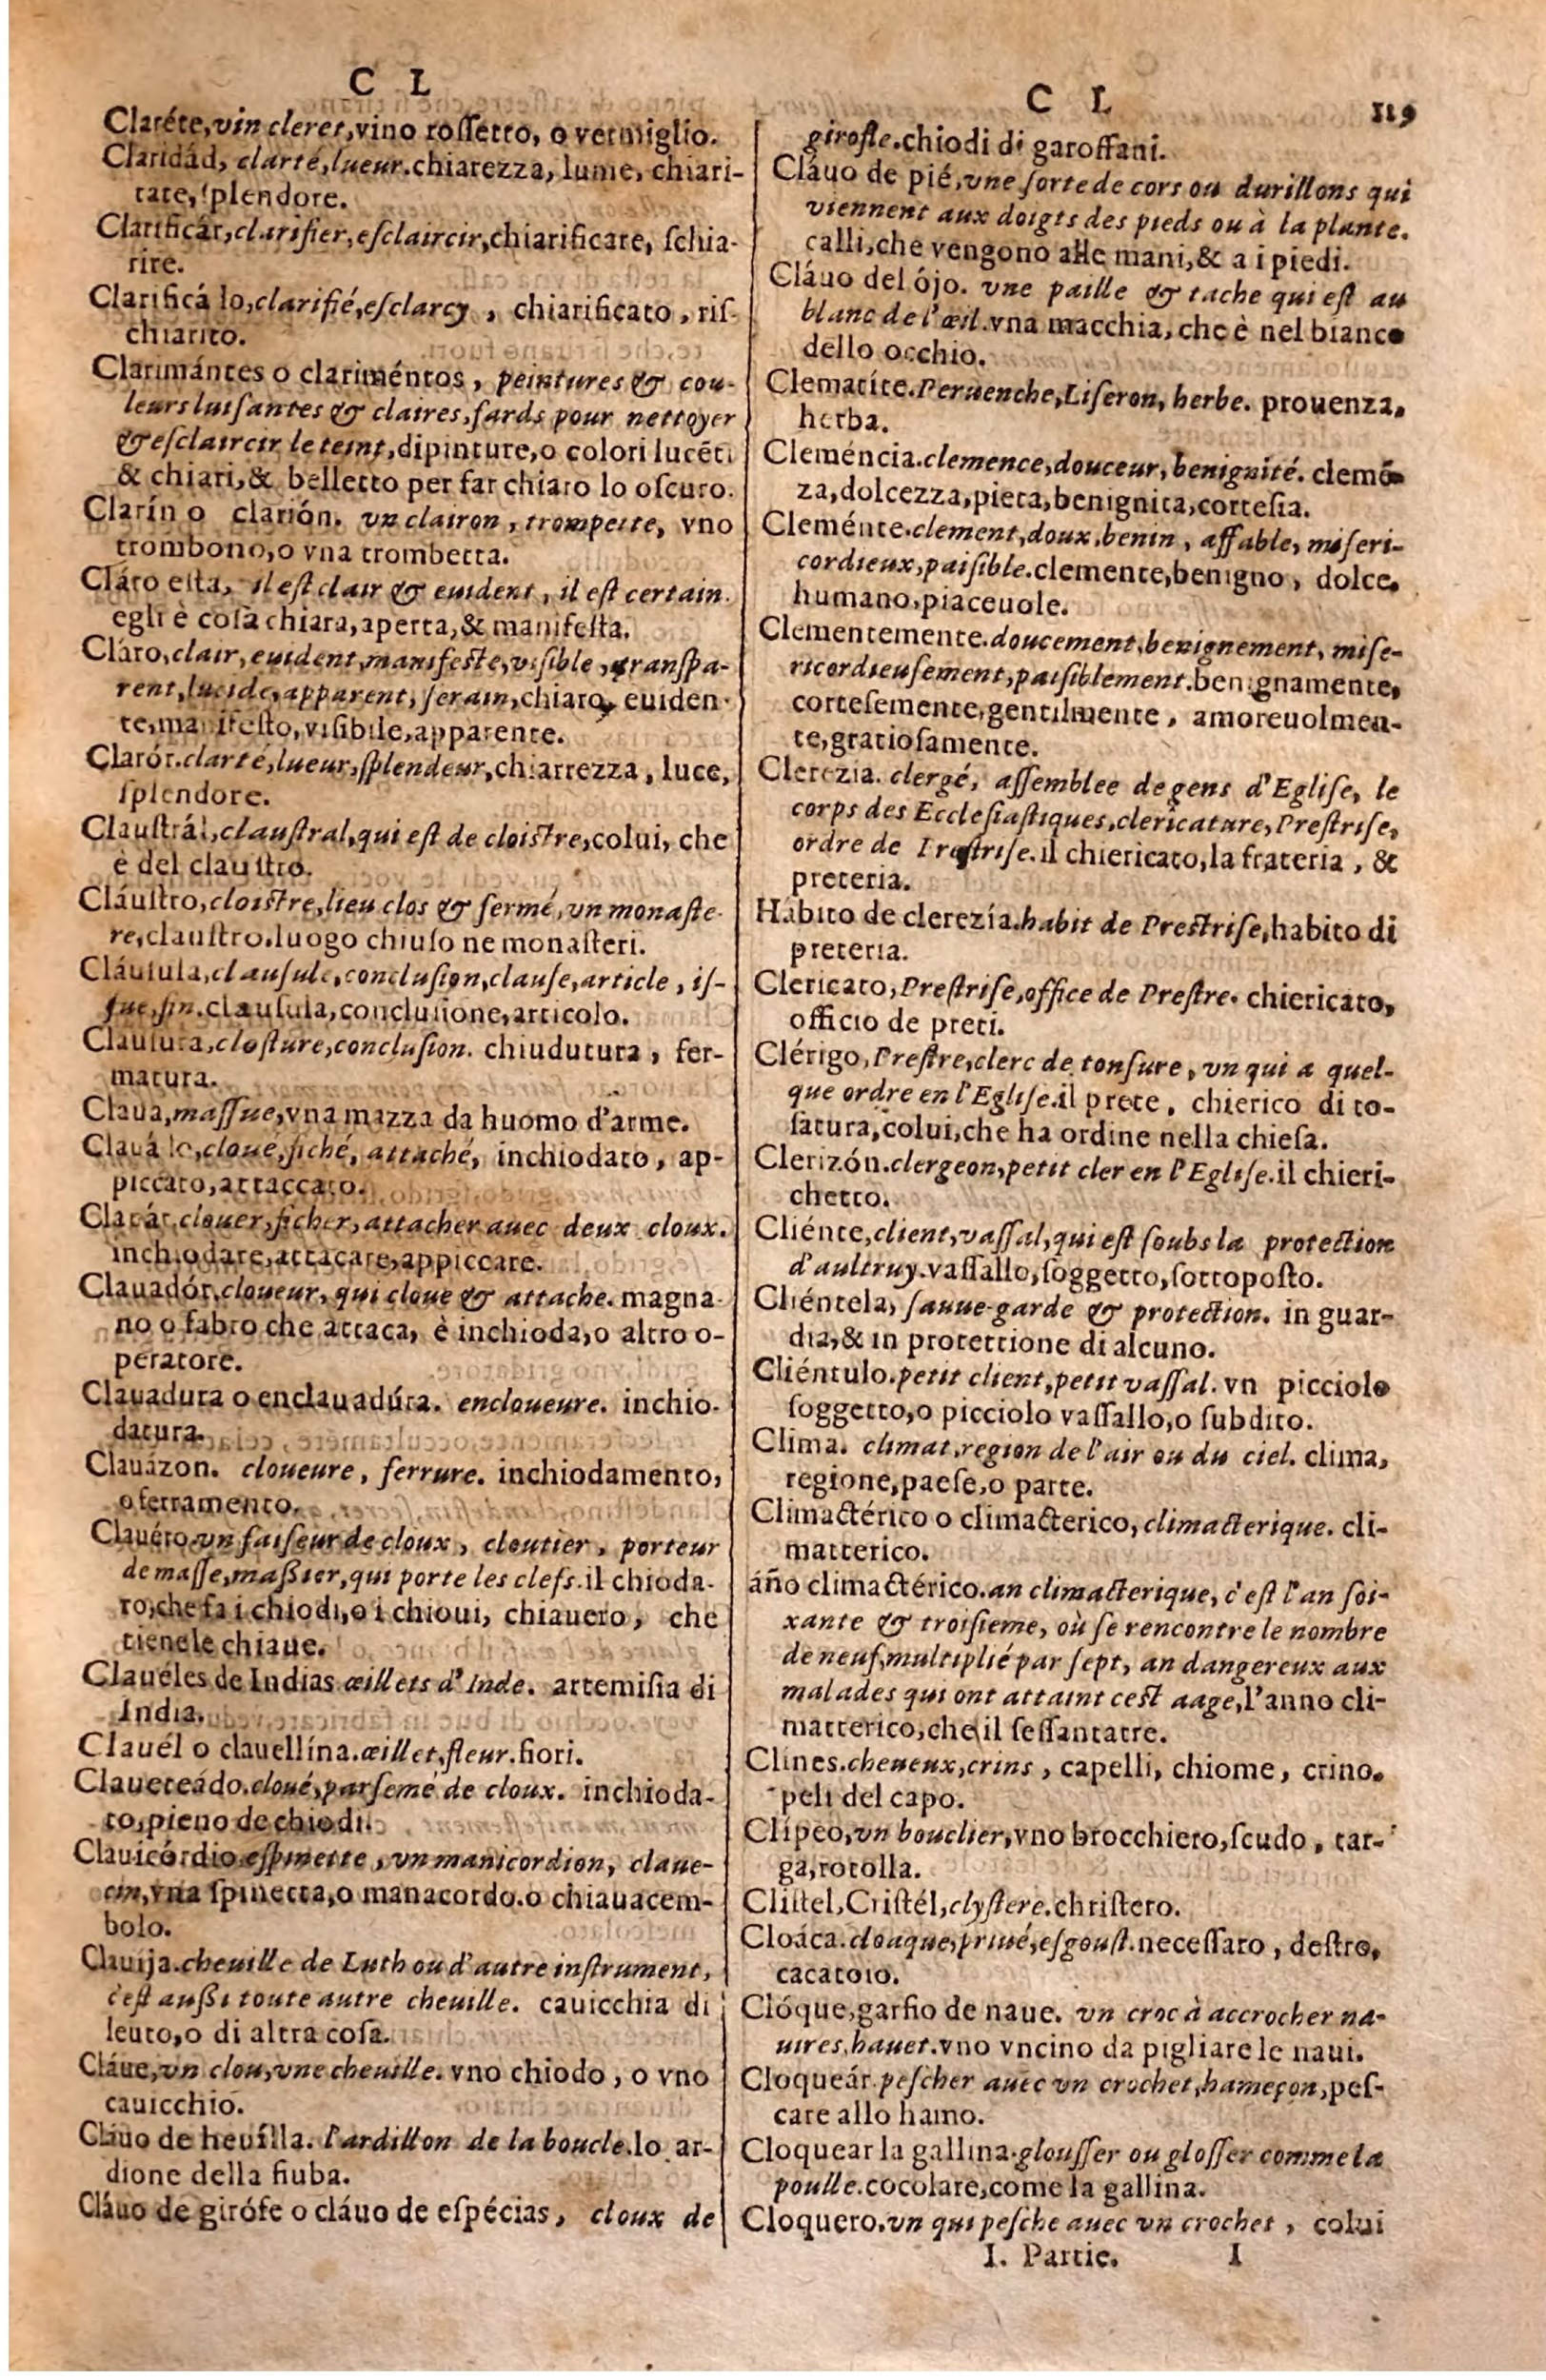 C L
Claréte, vin cleret, vino rosſetto, o vermiglio.
Claridád, clarté, lueur. chiarezza, lume, chiari-
tate, ſplendore.
Clarificár, clarifier, eſclaircir, chiarificare, ſchia-
rire.
Clarificá lo, clarifié, eſclarcy, chiarificato, riſ-
chiarito.
Clarimántes o clariméntos, peintures & cou-
leurs luiſantes & claires, fards pour nettoyer
& eſclaircir le teint, dipinture, o colori lucẽti
& chiari, & belletto per far chiaro lo oſcuro.
Clarín o clarión. vn clairon, trompette, vno
trombono, o vna trombetta.
Cláro eſta, il eſt clair & euident, il eſt certain.
egli è coſa chiara, aperta, & manifeſta.
Cláro, clair, euident, manifeſte, viſible, tranſpa-
rent, lucide, apparent, ſerain, chiaro, euiden-
te, manifeſto, viſibile, apparente.
Clarór. clarté, lueur, ſplendeur, chiarrezza, luce,
ſplendore.
Clauſtrál, clauſtral, qui eſt de cloiſtre, colui, che
è del clauſtro.
Cláuſtro, cloiſtre, lieu clos & fermé, vn monaſte-
re, clauſtro. luogo chiuſo ne monaſteri.
Cláuſula, clauſule, concluſion, clauſe, article, iſ-
ſue, fin. clauſula, concluſione, articolo.
Clauſura, cloſture, concluſion. chiudutura, fer-
matura.
Claua, maſſue, vna mazza da huomo d'arme.
Clauá lo, cloué, fiché, attaché, inchiodato, ap-
piccato, attaccato.
Clauár, clouer, ficher, attacher auec deux cloux.
inchiodare, attacare, appiccare.
Clauadór. cloueur, qui cloue & attache. magna-
no o fabro che attaca, è inchioda, o altro o-
peratore.
Clauadura o enclauadúra. encloueure. inchio-
datura.
Clauázon. cloueure, ferrure. inchiodamento,
o ferramento.
Clauéro. vn faiſeur de cloux, cloutier, porteur
de maſſe, maßier, qui porte les clefs. il chioda-
ro, che fa i chiodi, o i chioui, chiauero, che
tiene le chiaue.
Clauéles de Indias œillets d'Inde. artemiſia di
India.
Clauél o clauellína. œillet, fleur. fiori.
Claueteádo. cloué, parſemé de cloux. inchioda-
to, pieno de chiodi.
Clauicórdio eſpinette, vn manicordion, claue-
cin, vna ſpinetta, o manacordo. o chiauacem-
bolo.
Clauija. cheuille de Luth ou d'autre inſtrument,
c'eſt außi toute autre cheuille. cauicchia di
leuto, o di altra coſa.
Cláue, vn clou, vne cheuille. vno chiodo, o vno
cauicchio.
Cláuo de heuílla. l'ardillon de la boucle. lo ar-
dione della fiuba.
Cláuo de girófe o cláuo de eſpécias, cloux de
C L 119
girofle. chiodi di garoffani.
Cláuo de pié, vne ſorte de cors ou durillons qui
viennent aux doigts des pieds ou à la plante.
calli, che vengono alle mani, & a i piedi.
Cláuo del ójo. vne paille & tache qui eſt au
blanc de l'œil. vna macchia, che è nel bianco
dello occhio.
Clematíte. Peruenche, Liſeron, herbe. prouenza,
herba.
Cleméncia. clemence, douceur, benignité. clemẽ-
za, dolcezza, pieta, benignita, corteſia.
Cleménte. clement, doux, benin, affable, miſeri-
cordieux, paiſible. clemente, benigno, dolce,
humano, piaceuole.
Clementemente. doucement, benignement, miſe-
ricordieuſement, paiſiblement. benignamente,
corteſemente, gentilmente, amoreuolmen-
te, gratioſamente.
Clerezia. clergé, aſſemblee de gens d'Egliſe, le
corps des Eccleſiaſtiques, clericature, Preſtriſe,
ordre de Preſtriſe. il chiericato, la frateria, &
preteria.
Hábito de clerezía. habit de Preſtriſe, habito di
preteria.
Clericato, Preſtriſe, office de Preſtre. chiericato,
officio de preti.
Clérigo, Preſtre, clerc de tonſure, vn qui a quel-
que ordre en l'Egliſe. il prete, chierico di to-
ſatura, colui, che ha ordine nella chieſa.
Clerizón. clergeon, petit cler en l'Egliſe. il chieri-
chetto.
Cliénte, client, vaſſal, qui eſt ſoubs la protection
d'aultruy. vaſſallo, ſoggetto, ſottopoſto.
Cliéntela, ſauue-garde & protection. in guar-
dia, & in protettione di alcuno.
Cliéntulo. petit client, petit vaſſal. vn picciolo
ſoggetto, o picciolo vaſſallo, o ſubdito.
Clima. climat, region de l'air ou du ciel. clima,
regione, paeſe, o parte.
Climactérico o climacterico, climacterique. cli-
matterico.
áño climactérico. an climacterique, c'eſt l'an ſoi-
xante & troiſieme, où ſe rencontre le nombre
de neuf, multiplié par ſept, an dangereux aux
malades qui ont attaint ceſt aage, l'anno cli-
matterico, che il ſeſſantatre.
Clines. cheueux, crins, capelli, chiome, crino.
peli del capo.
Clípeo, vn bouclier, vno brocchiero, ſcudo, tar-
ga, rotolla.
Cliſtel, Criſtél, clyſtere. chriſtero.
Cloáca. cloaque, priué, eſgouſt. neceſſaro, deſtro,
cacatoio.
Clóque, garfio de naue. vn croc à accrocher na-
uires, hauet. vno vncino da pigliare le naui.
Cloqueár peſcher auec vn crochet, hameçon, peſ-
care allo hamo.
Cloquear la gallina. glouſſer ou gloſſer comme la
poulle. cocolare, come la gallina.
Cloquero. vn qui peſche auec vn crochet, colui
I. Partie. I